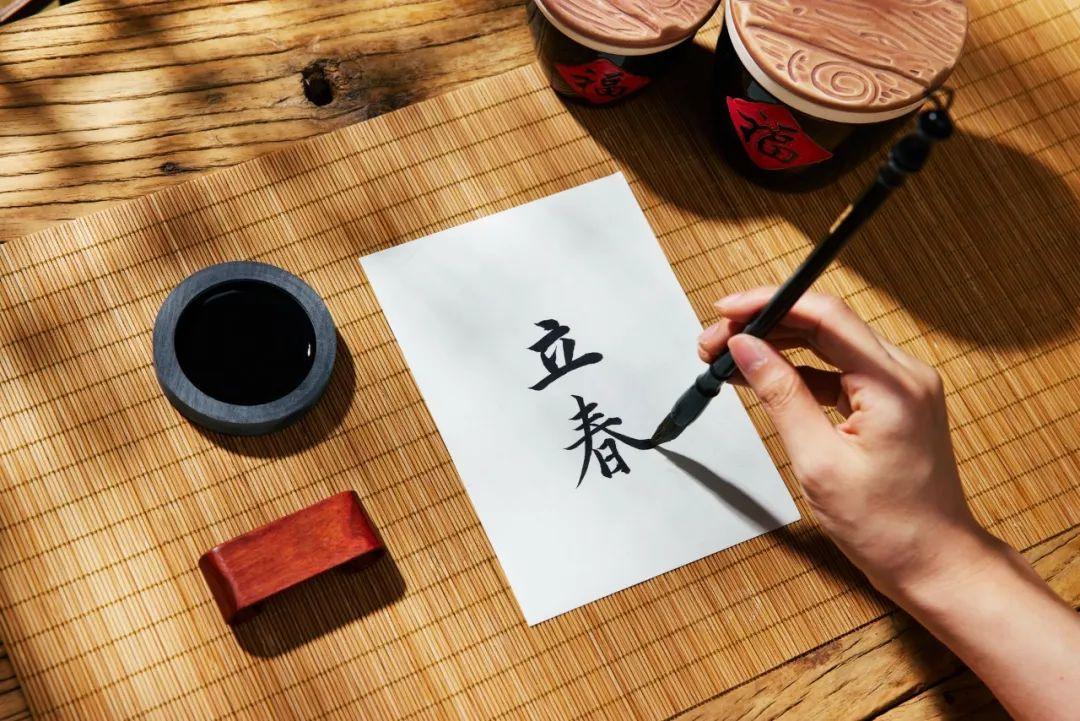 福
福
立
春